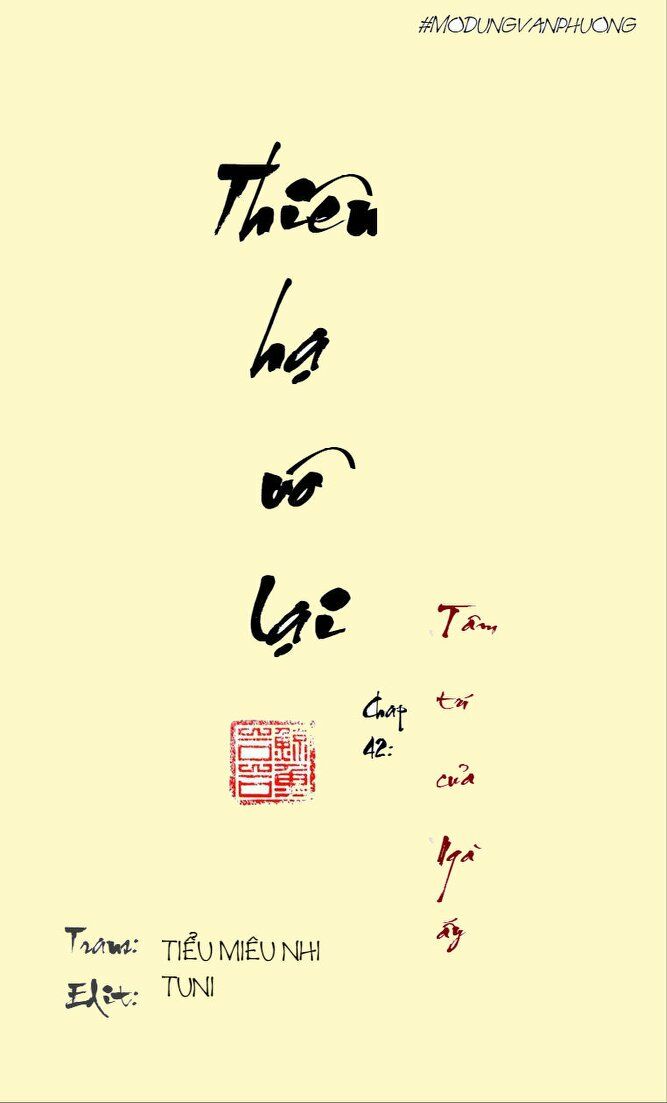 #MODUNGVANPHUONG
Thiên
hạ
vô
lại
Chap
42:
Tâm
trí
của
Ngài
ấy
Trans: TIỂU MIÊU NHI
Edit: TUNI